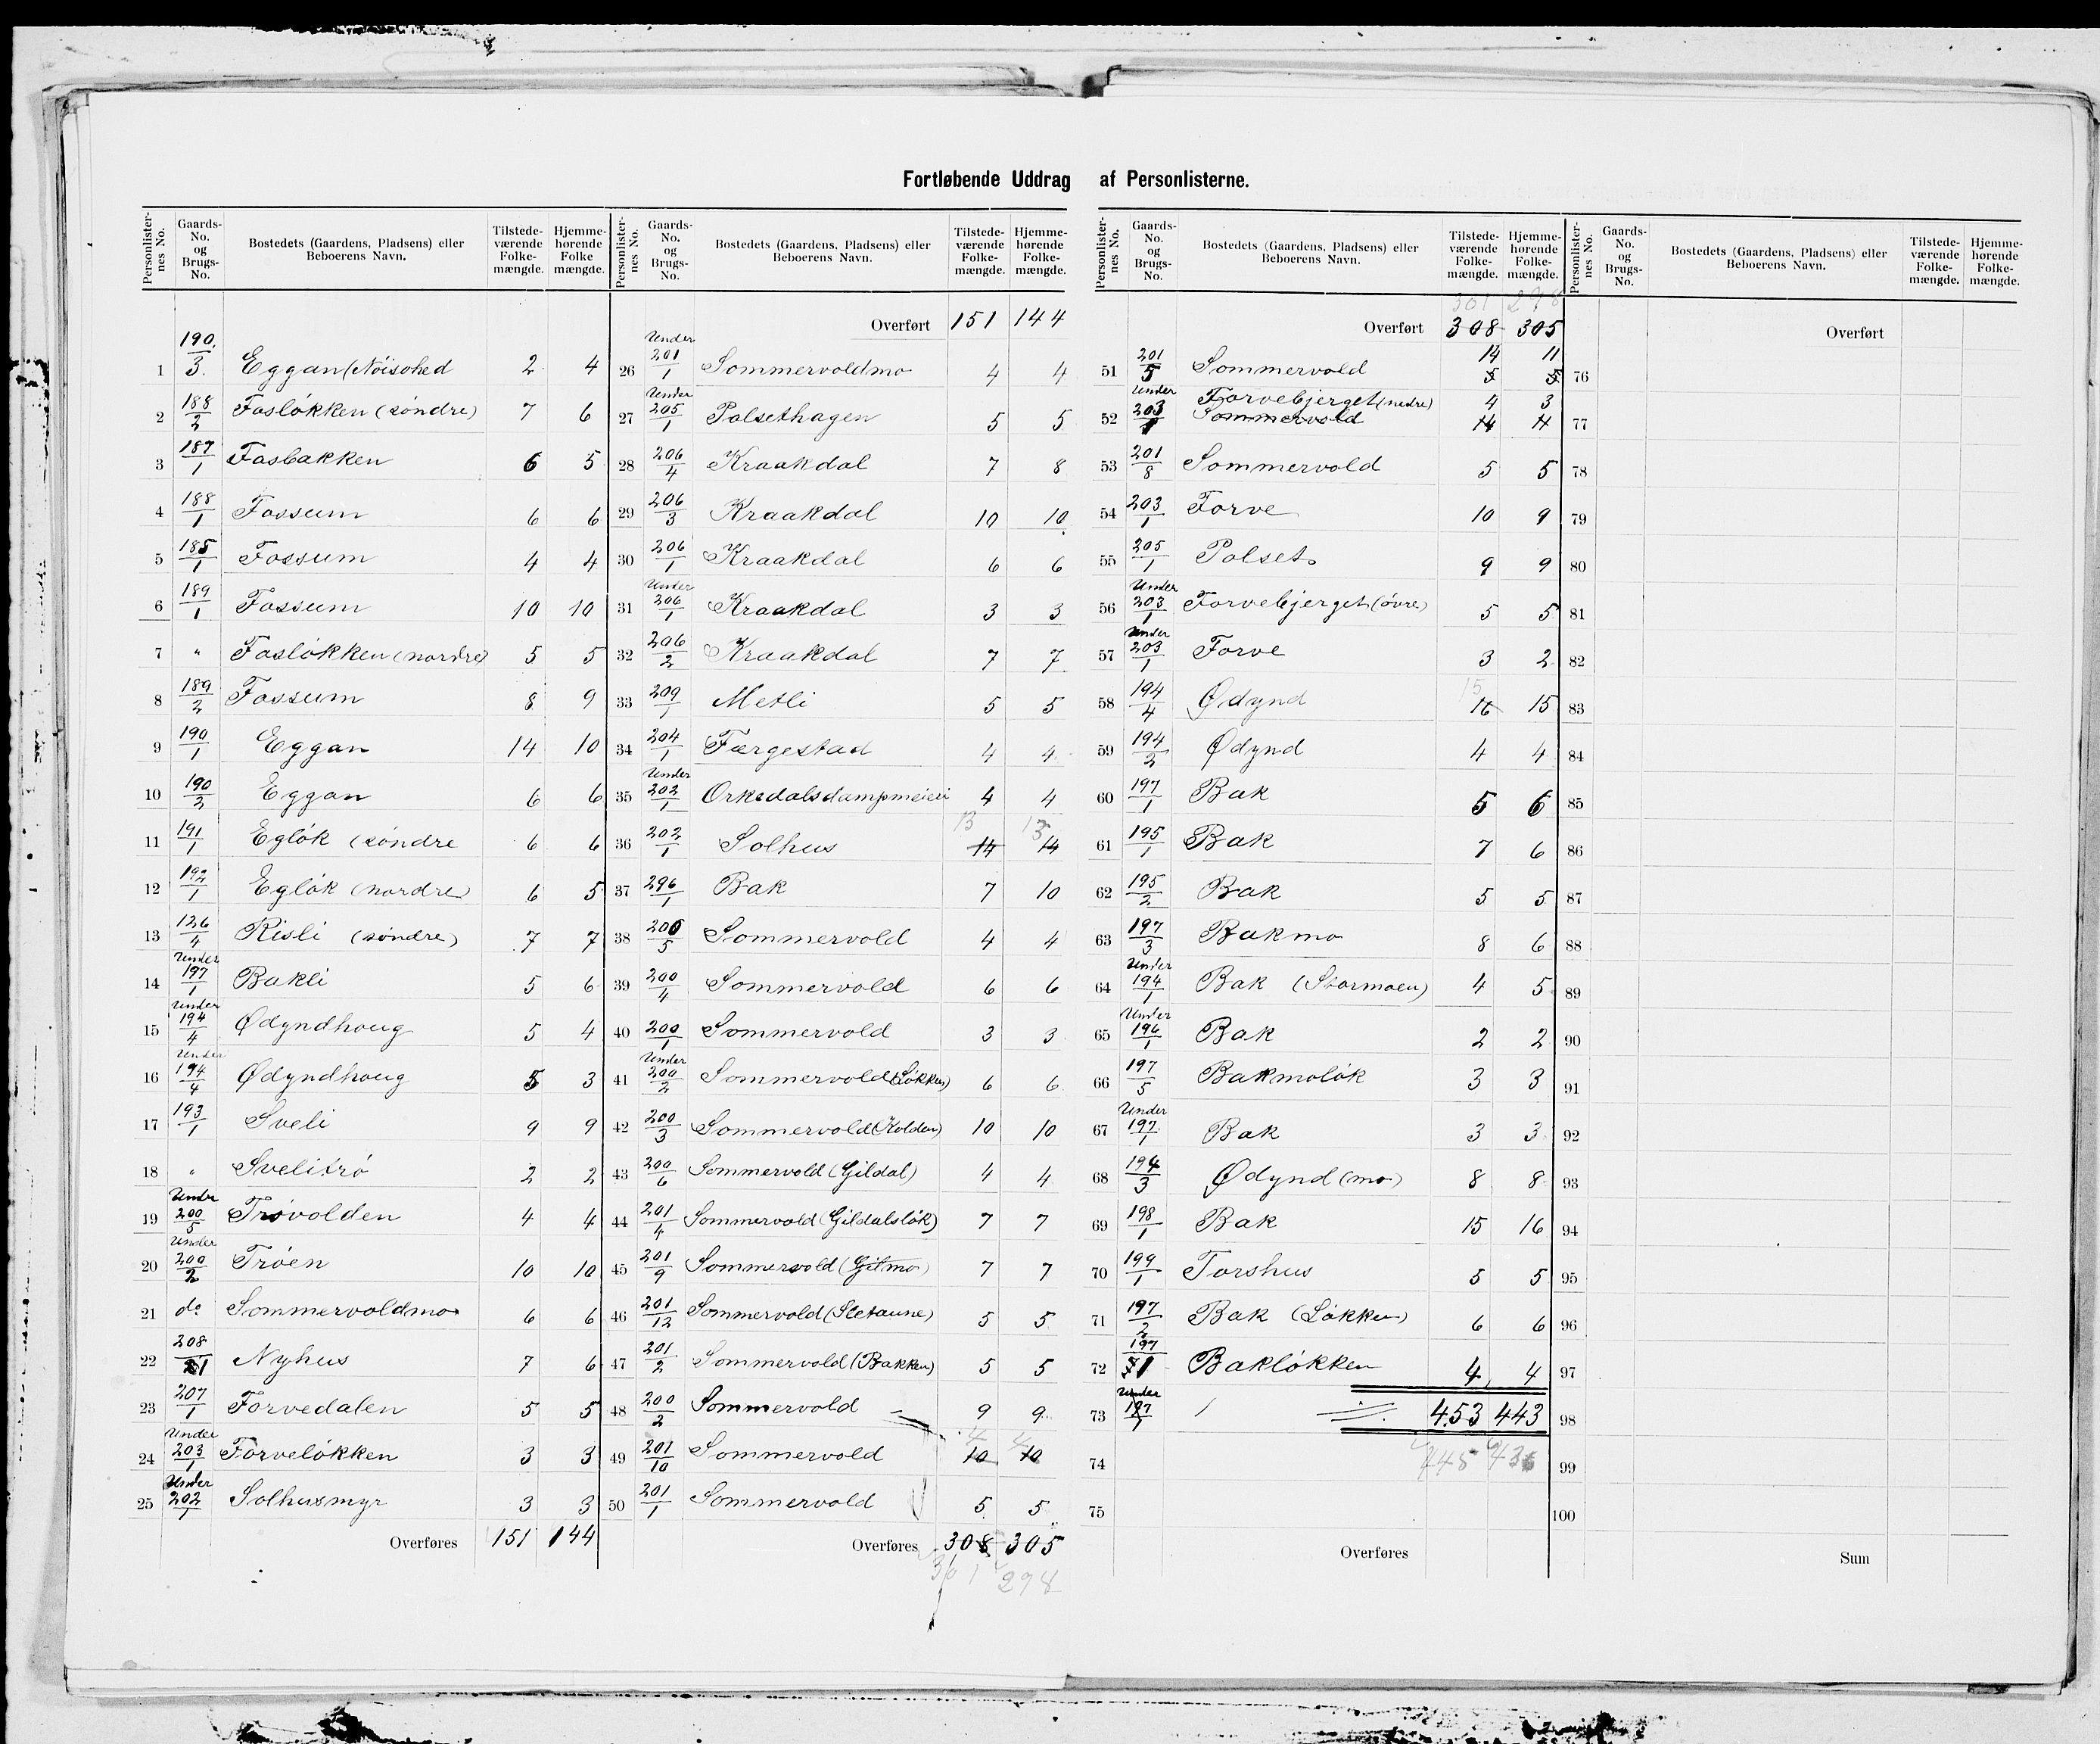 Fortløbende Uddrag af Personlisterne.
Personlisternes No. Gaards-No. og Brugs-No. Bostedets (Gaardens, Pladsens) eller Beboerens Navn. Tilstedeværende Folkemængde. Hjemmehørende Folkemængde.
1 190/3 Eggan (Nöisohed 2 4
2 188/2 Fasløkken (söndre) 7 6
3 187/1 Fasbakken 6 5
4 188/1 Fossum 6 6
5 185/1 Fossum 4 4
6 189/1 Fossum 10 10
7 " Fasløkken (nordre) 5 5
8 189/2 Fossum 8 9
9 190/1 Eggan 14 10
10 190/2 Eggan 6 6
11 191/1 Egløk (söndre 6 6
12 192/1 Egløk (nordre) 6 5
13 126/4 Risli (söndre) 7 7
14 Under 197/1 Bakli 5 6
15 Under 194/4 Ødyndhoug 5 4
16 Under 194/4 Ødyndhoug 5 3
17 193/1 Sveli 9 9
18 " Svelitrö 2 2
19 Under 200/5 Trøvolden 4 4
20 Under 200/2 Trøen 10 10
21 do Sommervoldmo 6 6
22 208/1 Nyhus 7 6
23 207/1 Forvedalen 5 5
24 Under 203/1 Forveløkken 3 3
25 Under 202/1 Solhusmyr 3 3
Overføres 151 144
Personlisternes No. Gaards-No. og Brugs-No. Bostedets (Gaardens, Pladsens) eller Beboerens Navn. Tilstedeværende Folkemængde. Hjemmehørende Folkemængde.
Overført 151 144
26 Under 201/1 Sommervoldmo 4 4
27 Under 205/1 Polsethagen 5 5
28 206/4 Kraakdal 7 8
29 206/3 Kraakdal 10 10
30 206/1 Kraakdal 6 6
31 Under 206/1 Kraakdal 3 3
32 206/2 Kraakdal 7 7
33 209/1 Metli 5 5
34 204/1 Færgestad 4 4
35 Under 202/1 Orkedalsdampmeieri 4 4
13 13
36 202/1 Solhus 14 14
37 296/1 Bak 7 10
38 200/5 Sommervold 4 4
39 200/4 Sommervold 6 6
40 200/1 Sommervold 3 3
41 Under 200/2 Sommervold (Løkken) 6 6
42 200/3 Sommervold (Kolden) 10 10
43 200/6 Sommervold (Gildal) 4 4
44 201/4 Sommervold (Gildalsløk) 7 7
45 201/9 Sommervold (Gilmo) 7 7
46 201/12 Sommervold (Sletaune) 5 5
47 201/2 Sommervold (Bakken) 5 5
48 200/2 Sommervold 9 9
4 4
49 201/10 Sommervold 10 10
50 201/1 Sommervold 5 5
Overføres 308 305
301 298
Personlisternes No. Gaards-No. og Brugs-No. Bostedets (Gaardens, Pladsens) eller Beboerens Navn. Tilstedeværende Folkemængde. Hjemmehørende Folkemængde.
301 298
Overført 308 305
14 11
51 201/5 Sommervold 5 5
Under Forvebjerget (nedre) 4 3
52 203/1 Sommervold 14 11
53 201/8 Sommervold 5 5
54 203/1 Forve 10 9
55 205/1 Polset 9 9
56 Under 203/1 Forvebjerget (övre) 5 5
57 Under 203/1 Forve 3 2
15
58 194/4 Ødynd 16 15
59 194/2 Ødynd 4 4
60 197/1 Bak 5 6
61 195/1 Bak 7 6
62 195/2 Bak 5 5
63 197/3 Bakmo 8 6
64 Under 194/1 Bak (Stormoen) 4 5
65 Under 196/1 Bak 2 2
66 197/5 Bakmoløk 3 3
67 Under 197/1 Bak 3 3
68 194/3 Ødynd (mo) 8 8
69 198/1 Bak 15 16
70 199/1 Torshus 5 5
71 197/2 Bak (Løkken) 6 6
72 197/1 Bakløkken 4 4
73 Under 197/1 453 443
74 445 436
75
Overføres
Personlisternes No. Gaards-No. og Brugs-No. Bostedets (Gaardens, Pladsens) eller Beboerens Navn. Tilstedeværende Folkemængde. Hjemmehørende Folkemængde.
Overført
76
77
78
79
80
81
82
83
84
85
86
87
88
89
90
91
92
93
94
95
96
97
98
99
100
Sum